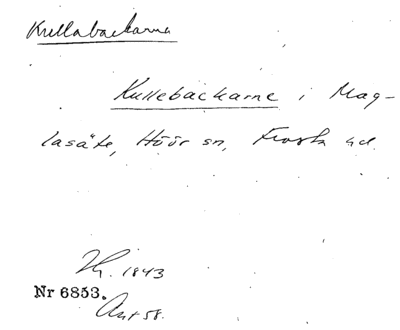 Kullabackarna
Kullebackarne i Mag-
lasäte, Höör sn, Frosta hd.
1843
Nr 6853.
Ant 58.